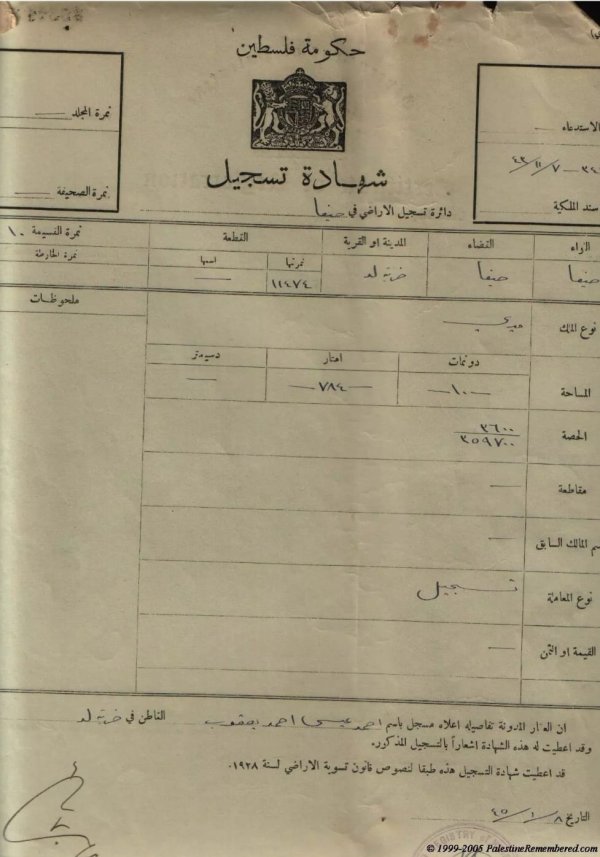 حكومة فلسطين
نمرة المجلد
الاستدعاء
٤٣/١١/٧ — ٣٤
شهادة تسجيل
نمرة الصحيفة
سند الملكية
دائرة تسجيل الاراضي في حيفا
اللواء القضاء المدينة او القرية القطعة نمرة القسيمة ١٠
نمرتها اسمها نمرة الخارطة
حيفا حيفا خربة لد ١١٤٧٤ —
نوع الملك ميري
ملحوظات
دونمات امتار دسيمتر
المساحة —١٠— —٧٨٤— —
الحصة ٣٦٠٠
٣٥٩٧٠٠
مقاطعة —
اسم المالك السابق —
نوع المعاملة تسجيل
القيمة او الثمن —
ان العقار المدونة تفاصيله اعلاه مسجل باسم احمد عيسى احمد يعقوب القاطن في خربة لد
وقد اعطيت له هذه الشهادة اشعاراً بالتسجيل المذكور.
قد اعطيت شهادة التسجيل هذه طبقا لنصوص قانون تسوية الاراضي لسنة ١٩٢٨.
التاريخ ٤٥/١/٨
© 1999-2005 PalestineRemembered.com